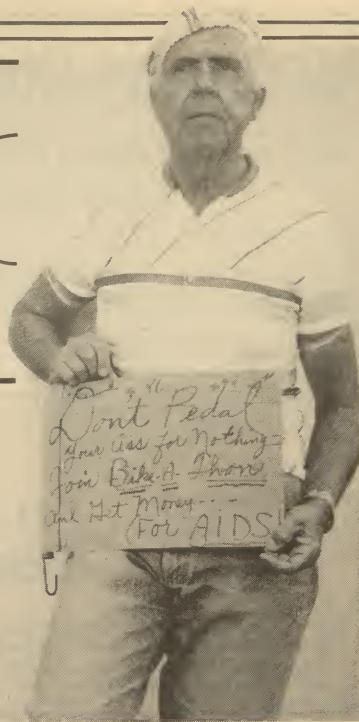 Dont Pedal
Your Ass for Nothing
Join Bike-A-Thon
And Get Money...
(For AIDS!